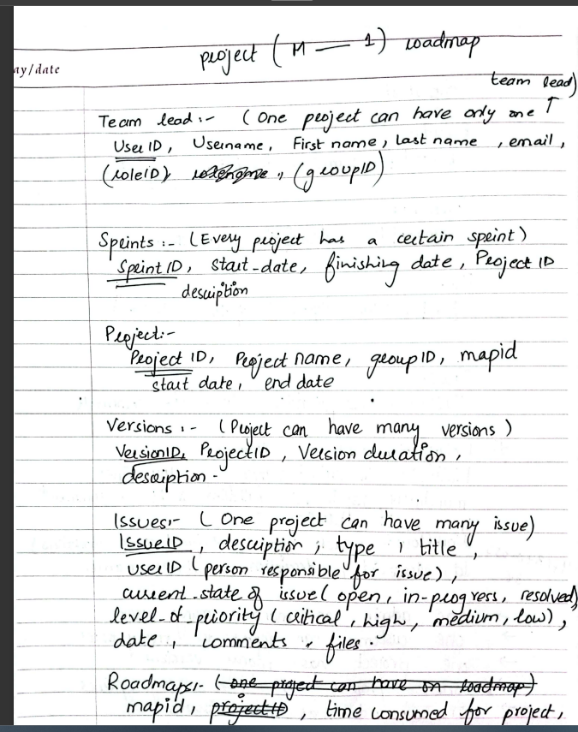 project ( M — 1 ) roadmap
ay/date
team lead)
Team lead :- ( One project can have only one ↑
User ID, Username, First name, last name , email,
(roleID) , (groupID)
Sprints :- (Every project has a certain sprint)
Sprint ID, start-date, finishing date, Project ID
description
Project:-
Project ID, Project name, groupID, mapid
start date, end date
Versions :- (Project can have many versions)
VersionID, ProjectID , Version duration ,
description .
Issues:- ( One project can have many issue)
IssueID , description , type , title ,
userID ( person responsible for issue) ,
current-state of issue( open, in-progress, resolved)
level-of-priority ( critical , high, medium, low) ,
date , comments , files .
Roadmaps:- (one project can have on roadmap)
mapid , projectID , time consumed for project,